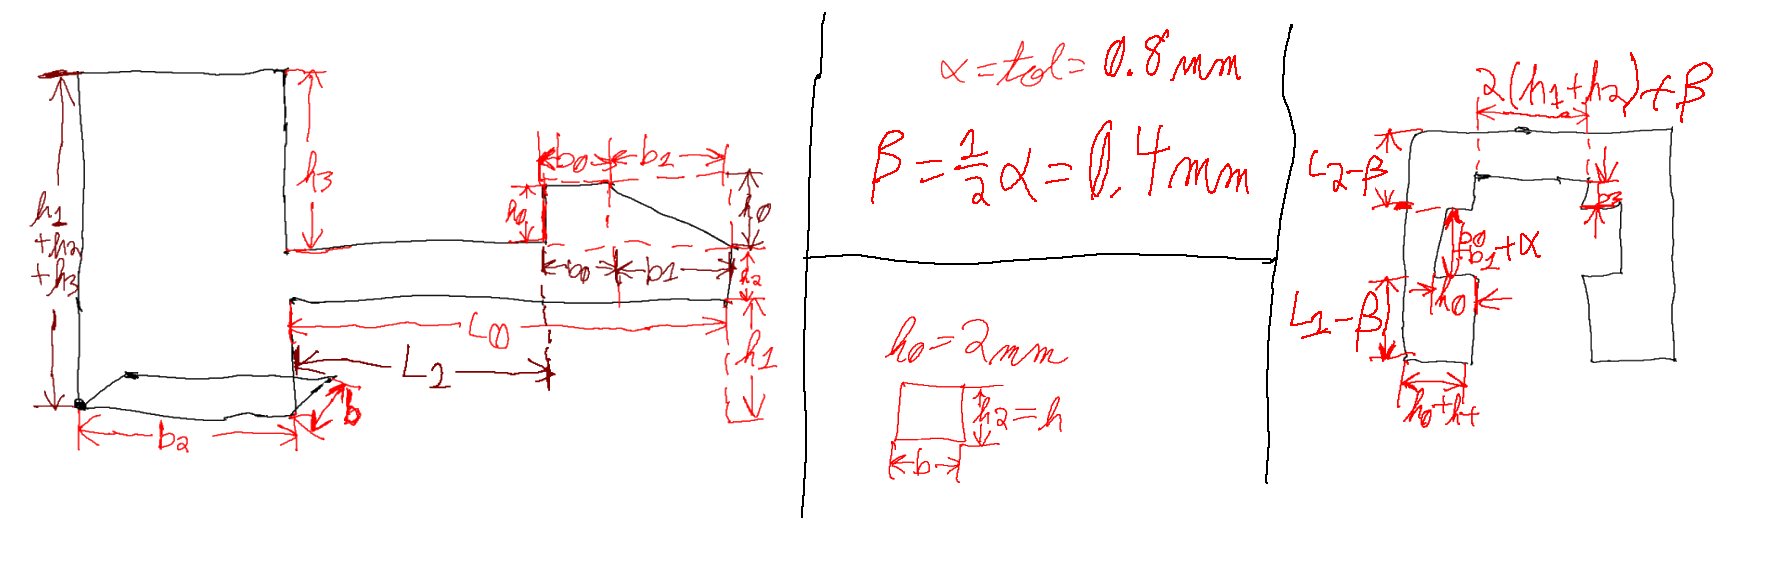 h1
+h2
+h3
h3
b0
b1
h0
h0
b0
b1
h2
L0
L2
h1
b
b2
α = tol = 0.8mm
β = 1/2 α = 0.4mm
h0 = 2mm
h2 = h
b
2(h1+h2)+β
L2-β
b3
b0
+b1 + α
h0
L1-β
h0+ht